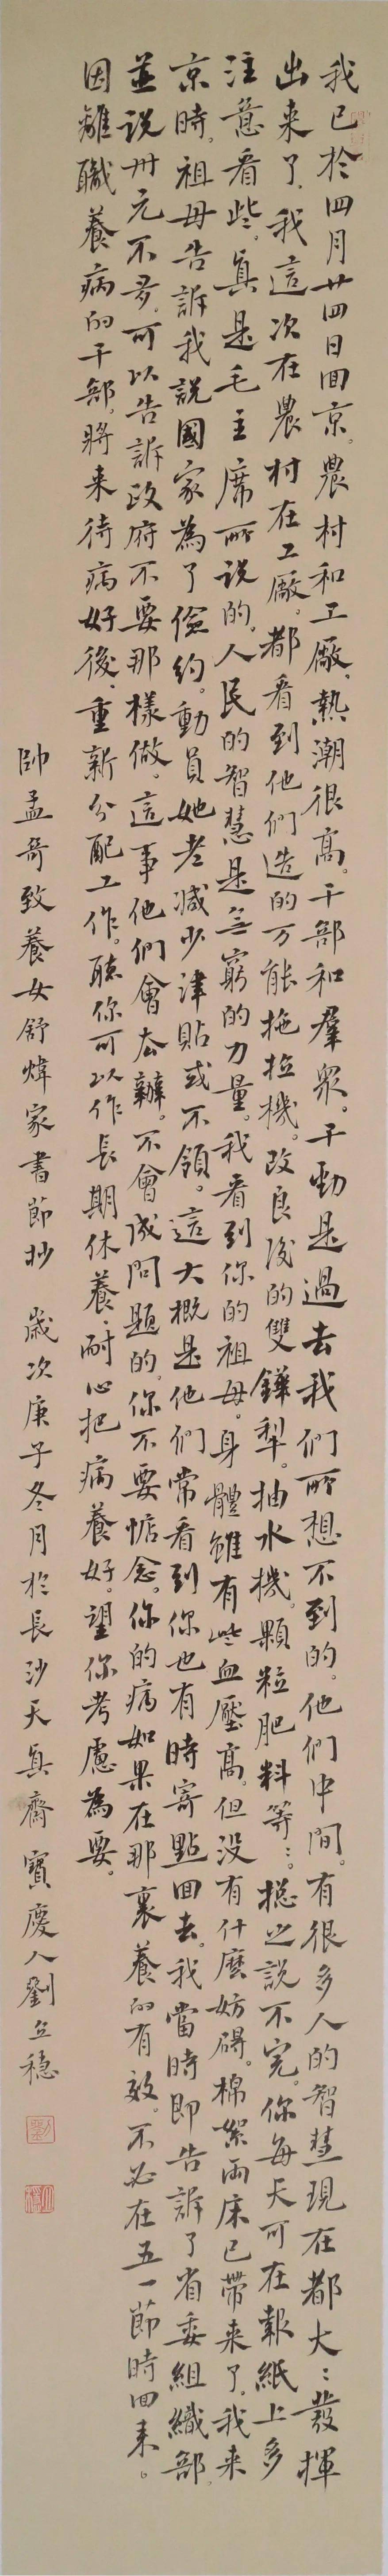 我已於四月廿四日回京。農村和工廠、熱潮很高。干部和羣衆。干勁是過去我們所想不到的。他們中間。有很多人的智慧現在都大：發揮
出来了、我這次在農村在工廠。都看到他們造的万能拖拉機。改良後的雙鏵犁。抽水機。顆粒肥料等：。總之説不完。你每天可在報紙上多
注意看些。真是毛主席所说的。人民的智慧是无窮的力量。我看到你的祖母。身體雖有些血壓高。但没有什麽妨碍。棉絮兩床已帶来了。我来
京時。祖母告訴我説國家為了儉約。動員她老减少津貼或不領。這大概是他們常看到你也有時寄點回去。我當時即告訴了省委組織部。
並说卅元不多。可以告訴政府不要那樣做。這事他們會去辦。不會成问題的。你不要惦念。你的病如果在那裏養的有效。不必在五一節時回来。
因離職養病的干部。將来待病好後、重新分配工作。聽你可以作長期休養、耐心把病養好。望你考慮為要。
帥孟奇致養女舒煒家書節抄　歲次庚子冬月於長沙天真齋寶慶人劉立穩